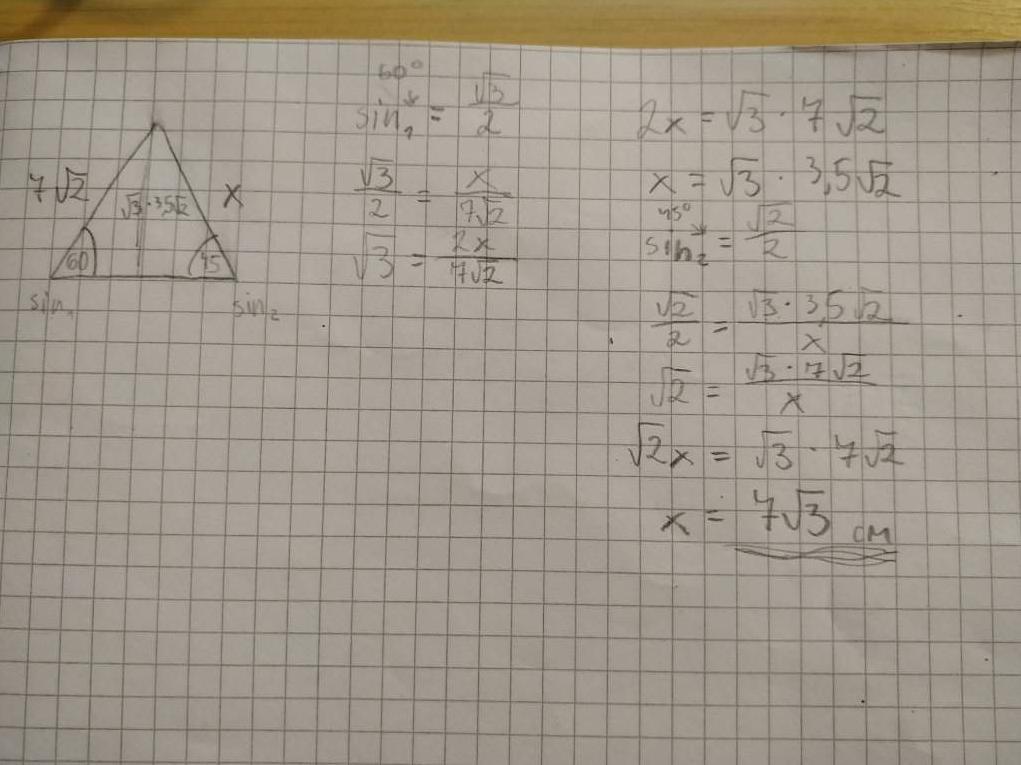 7√2
√3·3,5√2
x
60
45
sin₁
sin₂
60°
sin₁ = √3/2
√3/2 = x/7√2
√3 = 2x/7√2
2x = √3 · 7√2
x = √3 · 3,5√2
45°
sin₂ = √2/2
√2/2 = √3 · 3,5√2/x
√2 = √3 · 7√2/x
√2x = √3 · 7√2
x = 7√3 см